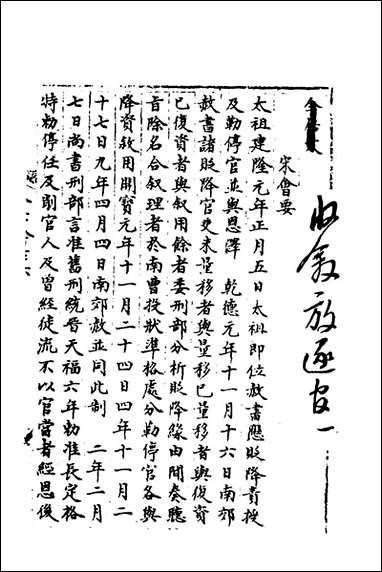 收敘放逐官一
宋會要
太祖建隆元年正月五日太祖即位赦書應貶降責授
及勒停官並與恩澤　乾德元年十一月十六日南郊
赦書諸貶降官吏未量移者與量移已量移者與復資
已復資者與敘用餘者委刑部分析貶降緣由聞奏應
旨除名合敘理者於南曹投狀準格處分勒停官各與
降資敘用開寶元年十一月二十四日四年十一月二
十七日九年四月四日南郊赦並同此制　二年二月
七日尚書刑部言准舊刑統晉天福六年勑准長定格
特勑停任及削官人及曾經徒流不以官當者經恩後